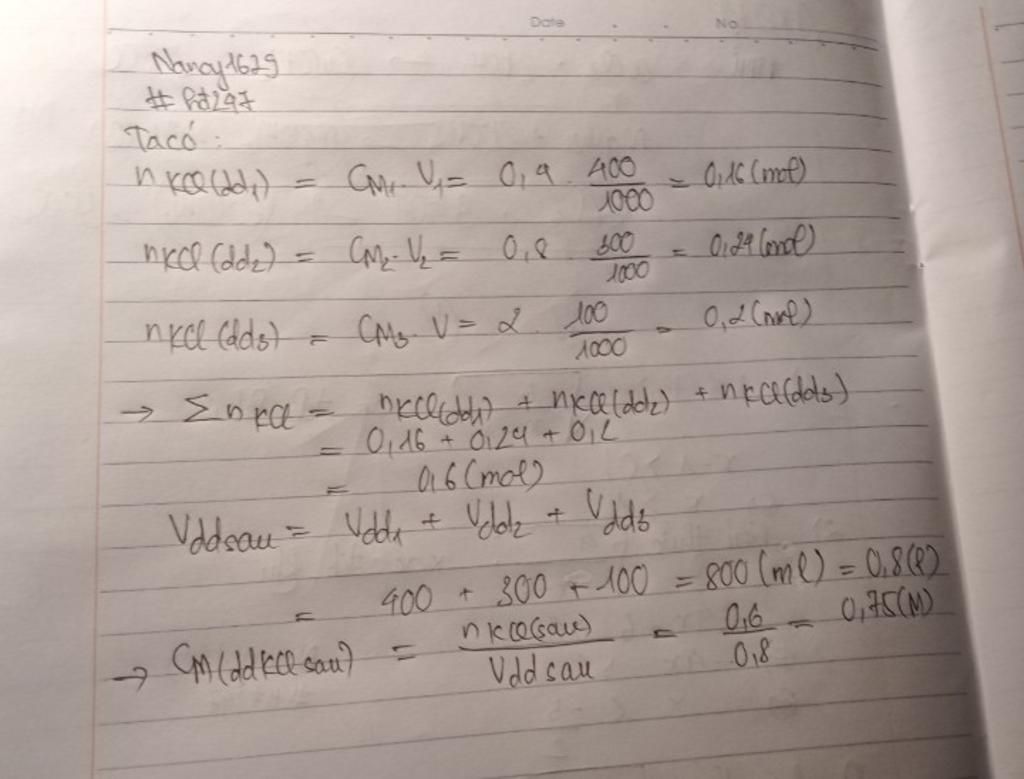 Date No
Nancy1629
Ta có:
nKCl(dd1) = CM1. V1 = 0,4 . 400/1000 = 0,16 (mol)
nKCl(dd2) = CM2. V2 = 0,8 . 300/1000 = 0,24 (mol)
nKCl(dd3) = CM3. V = 2 . 100/1000 = 0,2 (mol)
→ Σ nKCl = nKCl(dd1) + nKCl(dd2) + nKCl(dd3)
= 0,16 + 0,24 + 0,2
= 0,6 (mol)
Vddsau = Vdd1 + Vdd2 + Vdd3
= 400 + 300 + 100 = 800 (ml) = 0,8 (l)
→ CM(ddKCl sau) = nKCl(sau)/Vdd sau = 0,6/0,8 = 0,75 (M)